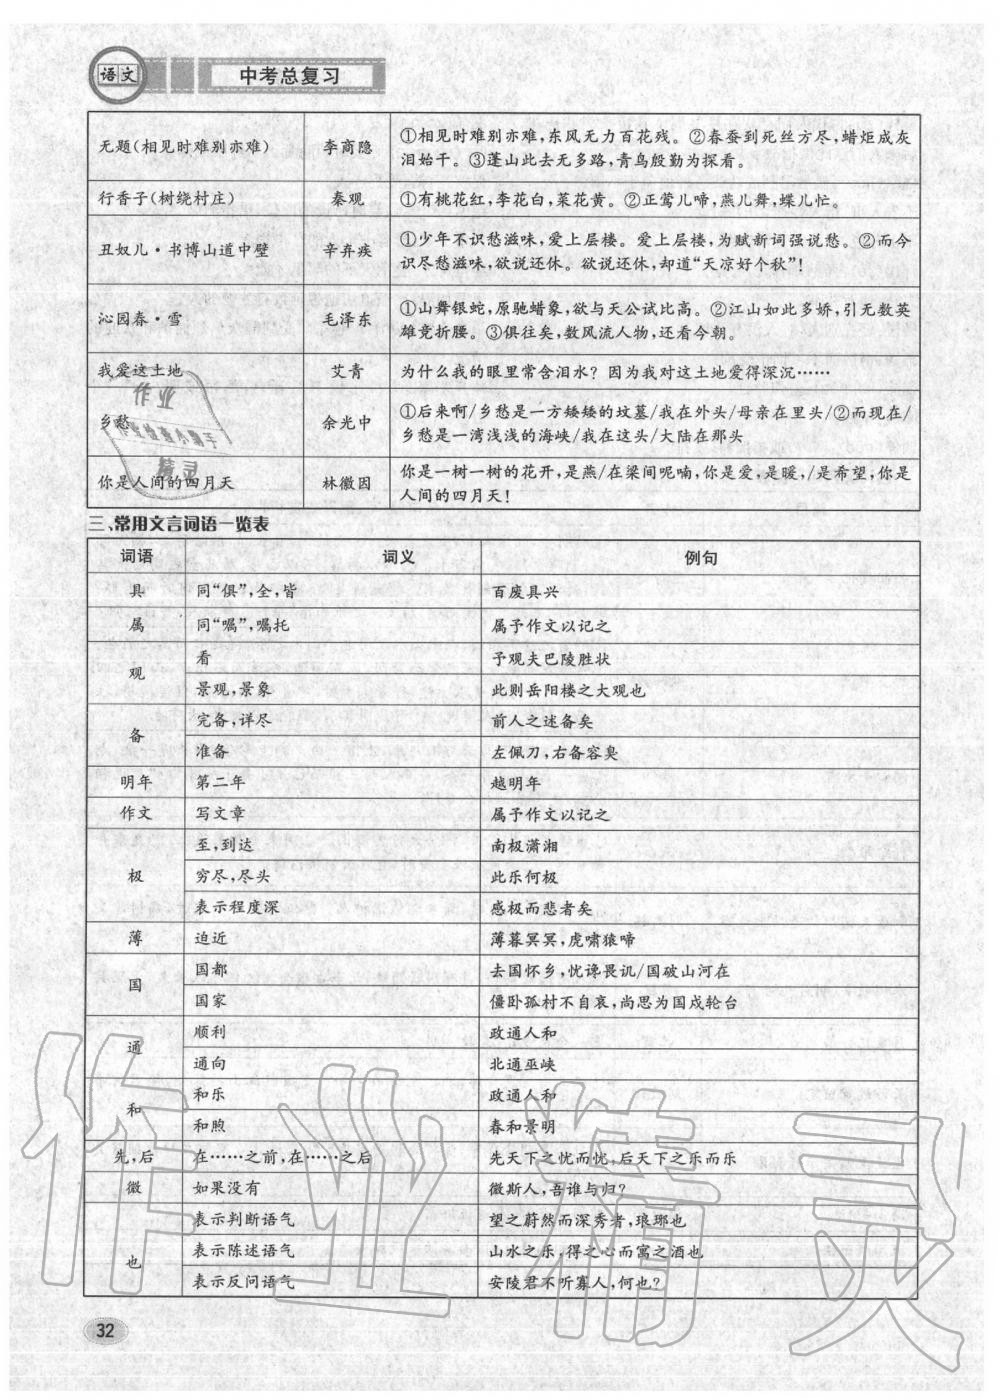 语文
中考总复习
无题(相见时难别亦难) 李商隐 ①相见时难别亦难,东风无力百花残。②春蚕到死丝方尽,蜡炬成灰
泪始干。③蓬山此去无多路,青鸟殷勤为探看。
行香子(树绕村庄) 秦观 ①有桃花红,李花白,菜花黄。②正莺儿啼,燕儿舞,蝶儿忙。
丑奴儿·书博山道中壁 辛弃疾 ①少年不识愁滋味,爱上层楼。爱上层楼,为赋新词强说愁。②而今
识尽愁滋味,欲说还休。欲说还休,却道“天凉好个秋”!
沁园春·雪 毛泽东 ①山舞银蛇,原驰蜡象,欲与天公试比高。②江山如此多娇,引无数英
雄竞折腰。③俱往矣,数风流人物,还看今朝。
我爱这土地 艾青 为什么我的眼里常含泪水?因为我对这土地爱得深沉……
乡愁 余光中 ①后来啊/乡愁是一方矮矮的坟墓/我在外头/母亲在里头/②而现在/
乡愁是一湾浅浅的海峡/我在这头/大陆在那头
你是人间的四月天 林徽因 你是一树一树的花开,是燕/在梁间呢喃,你是爱,是暖,/是希望,你是
人间的四月天!
作业
作业检查小帮手
精灵
三、常用文言词语一览表
词语 词义 例句
具 同“俱”,全,皆 百废具兴
属 同“嘱”,嘱托 属予作文以记之
观 看 予观夫巴陵胜状
景观,景象 此则岳阳楼之大观也
备 完备,详尽 前人之述备矣
准备 左佩刀,右备容臭
明年 第二年 越明年
作文 写文章 属予作文以记之
极 至,到达 南极潇湘
穷尽,尽头 此乐何极
表示程度深 感极而悲者矣
薄 迫近 薄暮冥冥,虎啸猿啼
国 国都 去国怀乡,忧谗畏讥/国破山河在
国家 僵卧孤村不自哀,尚思为国戍轮台
通 顺利 政通人和
通向 北通巫峡
和 和乐 政通人和
和煦 春和景明
先,后 在……之前,在……之后 先天下之忧而忧,后天下之乐而乐
微 如果没有 微斯人,吾谁与归?
也 表示判断语气 望之蔚然而深秀者,琅琊也
表示陈述语气 山水之乐,得之心而寓之酒也
表示反问语气 安陵君不听寡人,何也?
作业精灵
32